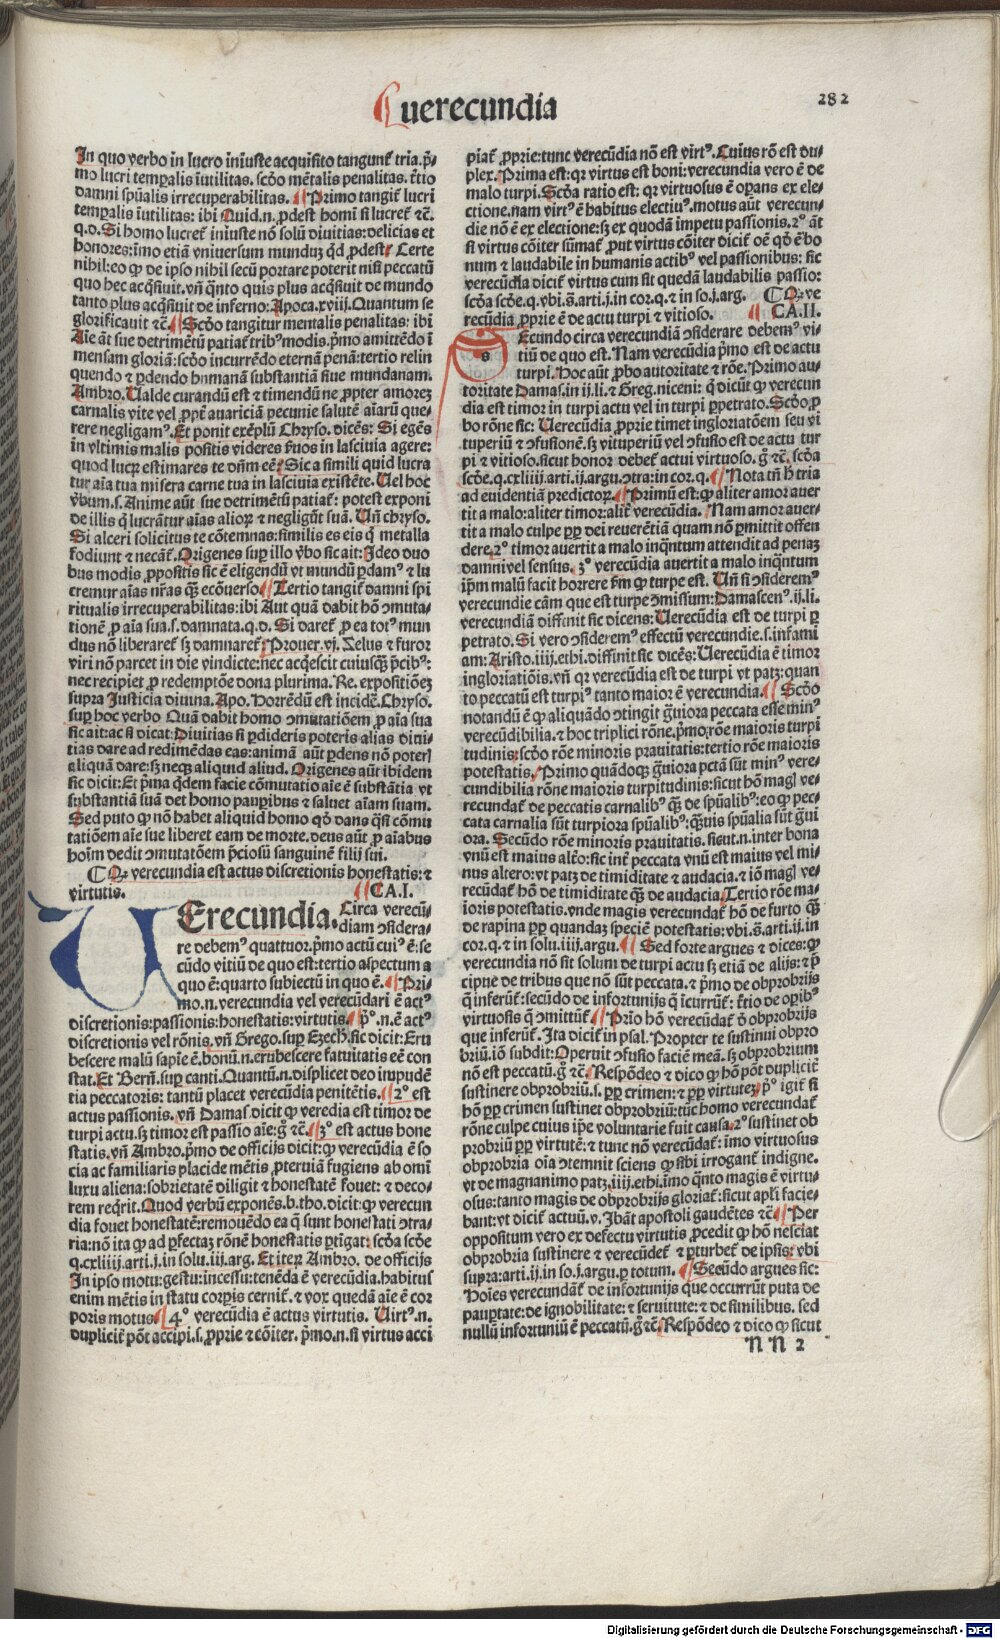 uerecundia
282
In quo verbo in lucro iniuste acquisito tangunt̃ tria. p̃-
mo lucri temꝑalis iutilitas. scd̃o mẽtalis penalitas. t̃tio
damni spũalis irrecuperabilitas. Primo tangit̃ lucri
temꝑalis iutilitas: ibi Quid.n. ꝓdest homi si lucret̃ ⁊c̃.
q.d. Si homo lucret̃ iniuste nõ solũ diuitias: delicias et
honores: imo etiã vniuersum munduz qd̃ ꝓdest? Certe
nihil: eo ꝙ de ipso nihil secũ portare poterit nisi peccatũ
quo hec acq̃siuit. vñ q̃nto quis plus acq̃siuit de mundo
tanto plus acq̃siuit de inferno: Apoca.xviij. Quantum se
glorificauit ⁊c̃. Scd̃o tangitur mentalis penalitas: ibi
Aĩe ãt sue detrimẽtũ patiat̃ trib⁹ modis. p̃mo amittẽdo ĩ
mensam gloriã: scd̃o incurrẽdo eternã penã: tertio relin
quendo ⁊ ꝑdendo humanã substantiã siue mundanam.
Ambro. Ualde curandũ est ⁊ timendũ ne ꝓpter amorez
carnalis vite vel ꝓpt̃ auariciã pecunie salutẽ aĩarũ que-
rere negligam⁹. Et ponit exẽplũ Chryso. dicẽs: Si egẽs
in vltimis malis positis videres s̃uos in lasciuia agere:
quod lucrꝝ estimares te dñm eẽ? Sic a simili quid lucra
tur aĩa tua misera carne tua in lasciuia existẽte. Uel hoc
v̉bum.s. Anime aũt sue detrimẽtũ patiat̃: potest exponi
de illis q̃ lucrãtur aĩas alioꝝ ⁊ negligũt suã. Uñ chryso.
Si alceri solicitus te cõtemnas: similis es eis q̃ metalla
fodiunt ⁊ necãt̃. Origenes suꝑ illo v̉bo sic ait: Ideo duo
bus modis ꝓpositis sic ẽ eligendũ vt mundũ ꝑdam⁹ ⁊ lu
cremur aĩas nr̃as q̃ꝫ ecõuerso. Tertio tangit̃ damni spi
ritualis irrecuperabilitas: ibi Aut quã dabit hõ ↄmuta-
tionẽ ꝓ aĩa sua.s. damnata.q.d. Si daret̃ ꝓ ea tot⁹ mun
dus nõ liberaret̃ sꝫ damnaret̃: Prouer.vj. Zelus ⁊ furor
viri nõ parcet in die vindicte: nec acq̃escit cuiusq̃ꝫ p̃cib⁹:
nec recipiet ꝓ redemptõe dona plurima. Re. expositiõez
supra Justicia diuina. Apo. Horrẽdũ est incidẽ. Chryso.
suꝑ hoc verbo Quã dabit homo ↄmutatiõem ꝓ aĩa sua
sic ait: ac si dicat: Diuitias si ꝑdideris poteris alias diui-
tias dare ad redimẽdas eas: animã aũt ꝑdens nõ poter̃
aliquã dare: sꝫ neqꝫ aliquid aliud. Origenes aũt ibidem
sic dicit: Et p̃ma q̃dem facie cõmutatio aĩe ẽ substãtia vt
substantiã suã det homo pauꝑibus ⁊ saluet aĩam suam.
Sed puto ꝙ nõ habet aliquid homo qd̉ dans q̃si cõmu
tatiõem aĩe sue liberet eam de morte. deus aũt ꝓ aĩabus
hoĩm dedit ↄmutatõem p̃ciosũ sanguinẽ filij sui.
Qꝛ verecundia est actus discretionis honestatis: ⁊
virtutis. CA.I.
UErecundia. Circa verecũ-
diam ↄsidera-
re debem⁹ quattuor. p̃mo actũ cui⁹ ẽ: se
cũdo vitiũ de quo est: tertio aspectum a
quo ẽ: quarto subiectũ in quo ẽ. Pri-
mo.n. verecundia vel verecũdari ẽ act⁹
discretionis: passionis: honestatis: virtutis. p̊.n.ẽ act⁹
discretionis vel rõnis. vñ Grego. suꝑ Ezech. sic dicit: Eru
bescere malũ sapiẽ ẽ. bonũ.n.erubescere fatuitatis eẽ con
stat. Et Berñ. suꝑ canti. Quantũ.n. displicet deo impudẽ
tia peccatoris: tantũ placet verecũdia penitẽtis. 2° est
actus passionis. vñ Damas. dicit ꝙ veredia est timor de
turpi actu. sꝫ timor est passio aĩe: g̊ ⁊c̃. 3° est actus hone
statis. vñ Ambro. p̃mo de officijs dicit: ꝙ verecũdia ẽ so
cia ac familiaris placide mẽtis ꝓteruiã fugiens ab omĩ
luxu aliena: sobrietatẽ diligit ⁊ honestatẽ fouet: ⁊ deco-
rem req̃rit. Quod verbũ exponẽs.b.tho. dicit: ꝙ verecun
dia fouet honestatẽ: remouẽdo ea q̃ sunt honestati ↄtra-
ria: nõ ita ꝙ ad ꝑfectaꝫ rõnẽ honestatis ꝑtĩgat: scd̃a scd̃e
q.cxliiij.arti.j.in solu.iij.arg. Et iteꝝ Ambro. de officijs
In ipso motu: gestu: incessu: tenẽda ẽ verecũdia. habitus
enim mẽtis in statu corꝑis cernit̃. ⁊ vox quedã aĩe ẽ cor
poris motus. 4° verecũdia ẽ actus virtutis. Uirt⁹.n.
duplicit̃ põt accipi.s. ꝓprie ⁊ cõiter. p̃mo.n. si virtus acci
piat̃ ꝓprie: tunc verecũdia nõ est virt⁹. Cuius rõ est du-
plex. Prima est: qꝛ virtus est boni: verecundia vero ẽ de
malo turpi. Scd̃a ratio est: qꝛ virtuosus ẽ oꝑans ex ele-
ctione. nam virt⁹ ẽ habitus electiu⁹. motus aũt verecun-
die nõ ẽ ex electione: sꝫ ex quodã impetu passionis. 2° ãt
si virtus cõiter sũmat̃ ꝓut virtus cõiter dicit̃ oẽ qd̉ ẽ bo
num ⁊ laudabile in humanis actib⁹ vel passionibus: sic
verecũdia dicit̃ virtus cum sit quedã laudabilis passio:
scd̃a scd̃e.q. vbi.s̃.arti.j.in cor.q.⁊ in so.j.arg. Qꝛ ve
recũdia ꝓprie ẽ de actu turpi ⁊ vitioso. CA.II.
s
Ecundo circa verecundiã ↄsiderare debem⁹ vi
tiũ de quo est. Nam verecũdia p̃mo est de actu
turpi. Hoc aũt ꝓbo autoritate ⁊ rõe. Primo au-
toritate Damas. in ij.li. ⁊ Greg. niceni: q̃ dicũt ꝙ verecun
dia est timor in turpi actu vel in turpi ꝑpetrato. Scd̃o ꝓ
bo rõne sic: Uerecũdia ꝓprie timet ingloriatõem seu vi
tuperiũ ⁊ ↄfusionẽ. sꝫ vituperiũ vel ↄfusio est de actu tur
pi ⁊ vitioso. sicut honor debet̃ actui virtuoso. g̊ ⁊c̃. scd̃a
scd̃e.q.cxliiij.arti.ij.argu.ↄtra: in cor.q. Nota tñ h̃ tria
ad euidentiã predictoꝝ. Primũ est: ꝙ aliter amor auer
tit a malo: aliter timor: alit̃ verecũdia. Nam amor auer-
tit a malo culpe ꝓꝑ dei reuerẽtiã quam nõ ꝑmittit offen
dere. 2° timor auertit a malo inq̃ntum attendit ad penaz
damni vel sensus. 3° verecũdia auertit a malo inq̃ntum
ip̃m malũ facit horrere s̃m ꝙ turpe est. Uñ si ↄsiderem⁹
verecundie cãm que est turpe ↄmissum: Damascen⁹.ij.li.
verecundiã diffinit sic dicens: Uerecũdia est de turpi ꝑ
petrato. Si vero ↄsiderem⁹ effectũ verecundie.s. infami
am: Aristo.iiij.ethi. diffinit sic dicẽs: Uerecũdia ẽ timor
ingloriatiõis. vñ qꝛ verecũdia est de turpi vt patꝫ: quan
to peccatũ est turpi⁹ tanto maior ẽ verecundia. Scd̃o
notandũ ẽ ꝙ aliquãdo ↄtingit g̃uiora peccata esse min⁹
verecũdibilia. ⁊ hoc triplici rõne. p̃mo: rõe maioris turpi
tudinis: scd̃o rõe minoris prauitatis: tertio rõe maioris
potestatis. Primo quãdoqꝫ g̃uiora pctã sũt min⁹ vere-
cundibilia rõne maioris turpitudinis: sicut hõ mag̃ ve-
recundat̃ de peccatis carnalib⁹ q̃ꝫ de spũalib⁹: eo ꝙ pec-
cata carnalia sũt turpiora spũalib⁹: q̃ꝫuis spũalia sũt g̃ui
ora. Secũdo rõe minoris prauitatis. sicut.n. inter bona
vnũ est maius alt̃o: sic int̃ peccata vnũ est maius vel mi-
nus altero: vt patꝫ de timiditate ⁊ audacia. ⁊ iõ mag̃ ve-
recũdat̃ hõ de timiditate q̃ꝫ de audacia. Tertio rõe ma-
ioris potestatis. vnde magis verecundat̃ hõ de furto q̃ꝫ
de rapina ꝓꝑ quandaꝫ speciẽ potestatis: vbi.s̃.arti.ij.in
cor.q.⁊ in solu.iiij.argu. Sed forte argues ⁊ dices: ꝙ
verecundia nõ sit solum de turpi actu sꝫ etiã de alijs: ⁊ p̃
cipue de tribus que nõ sũt peccata. ⁊ p̃mo de obprobrijs
q̃ inferũt̃: secũdo de infortunijs q̃ icurrũt̃: t̃tio de oꝑib⁹
virtuosis q̃ ↄmittũt̃. Prĩo hõ verecũdat̃ d̉ obprobrijs
que inferũt̃. Ita dicit̃ in psal. Propter te sustinui obpro
briũ. iõ subdit: Operuit ↄfusio faciẽ meã. sꝫ obprobrium
nõ est peccatũ. g̊ ⁊c̃. Respõdeo ⁊ dico ꝙ hõ põt duplicit̃
sustinere obprobriũ.s. ꝓꝑ crimen: ⁊ ꝓꝑ virtutez. p̊ igit̃ si
hõ ꝓꝑ crimen sustinet obprobriũ: tũc homo verecundat̃
rõne culpe cuius ip̃e voluntarie fuit causa. 2° sustinet ob
probriũ ꝓꝑ virtutẽ: ⁊ tunc nõ verecũdat̃: ĩmo virtuosus
obprobria oĩa ↄtemnit sciens ꝙ sibi irrogant̃ indigne.
vt de magnanimo patꝫ.iiij.ethi. ĩmo q̃nto magis ẽ virtu-
osus: tanto magis de obprobrijs gloriat̃: sicut apl̃i facie-
bant: vt dicit̃ actuũ.v. Ibãt apostoli gaudẽtes ⁊c̃. Per
oppositum vero ex defectu virtutis ꝓcedit ꝙ hõ nesciat
obprobria sustinere ⁊ verecũdet̃ ⁊ ꝑturbet̃ de ipsis: vbi
supra: arti.ij.in so.j.argu.ꝑ totum. Secũdo argues sic:
Hoĩes verecundãt̃ de infortunijs que occurrũt puta de
pauꝑtate: de ignobilitate: ⁊ seruitute: ⁊ de similibus. sed
nullũ infortuniũ ẽ peccatũ. g̊ ⁊c̃. Respõdeo ⁊ dico ꝙ sicut
N N 2
Digitalisierung gefördert durch die Deutsche Forschungsgemeinschaft - DFG